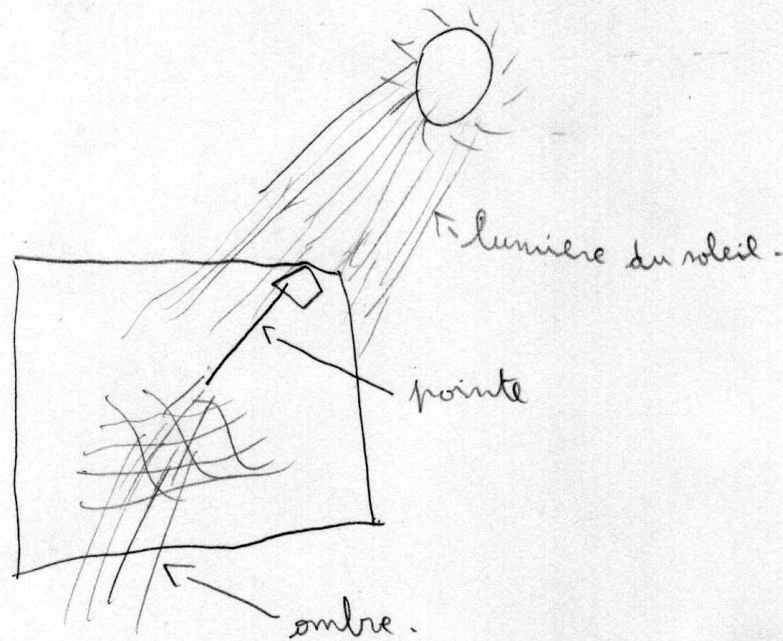 lumière du soleil.
pointe
ombre.